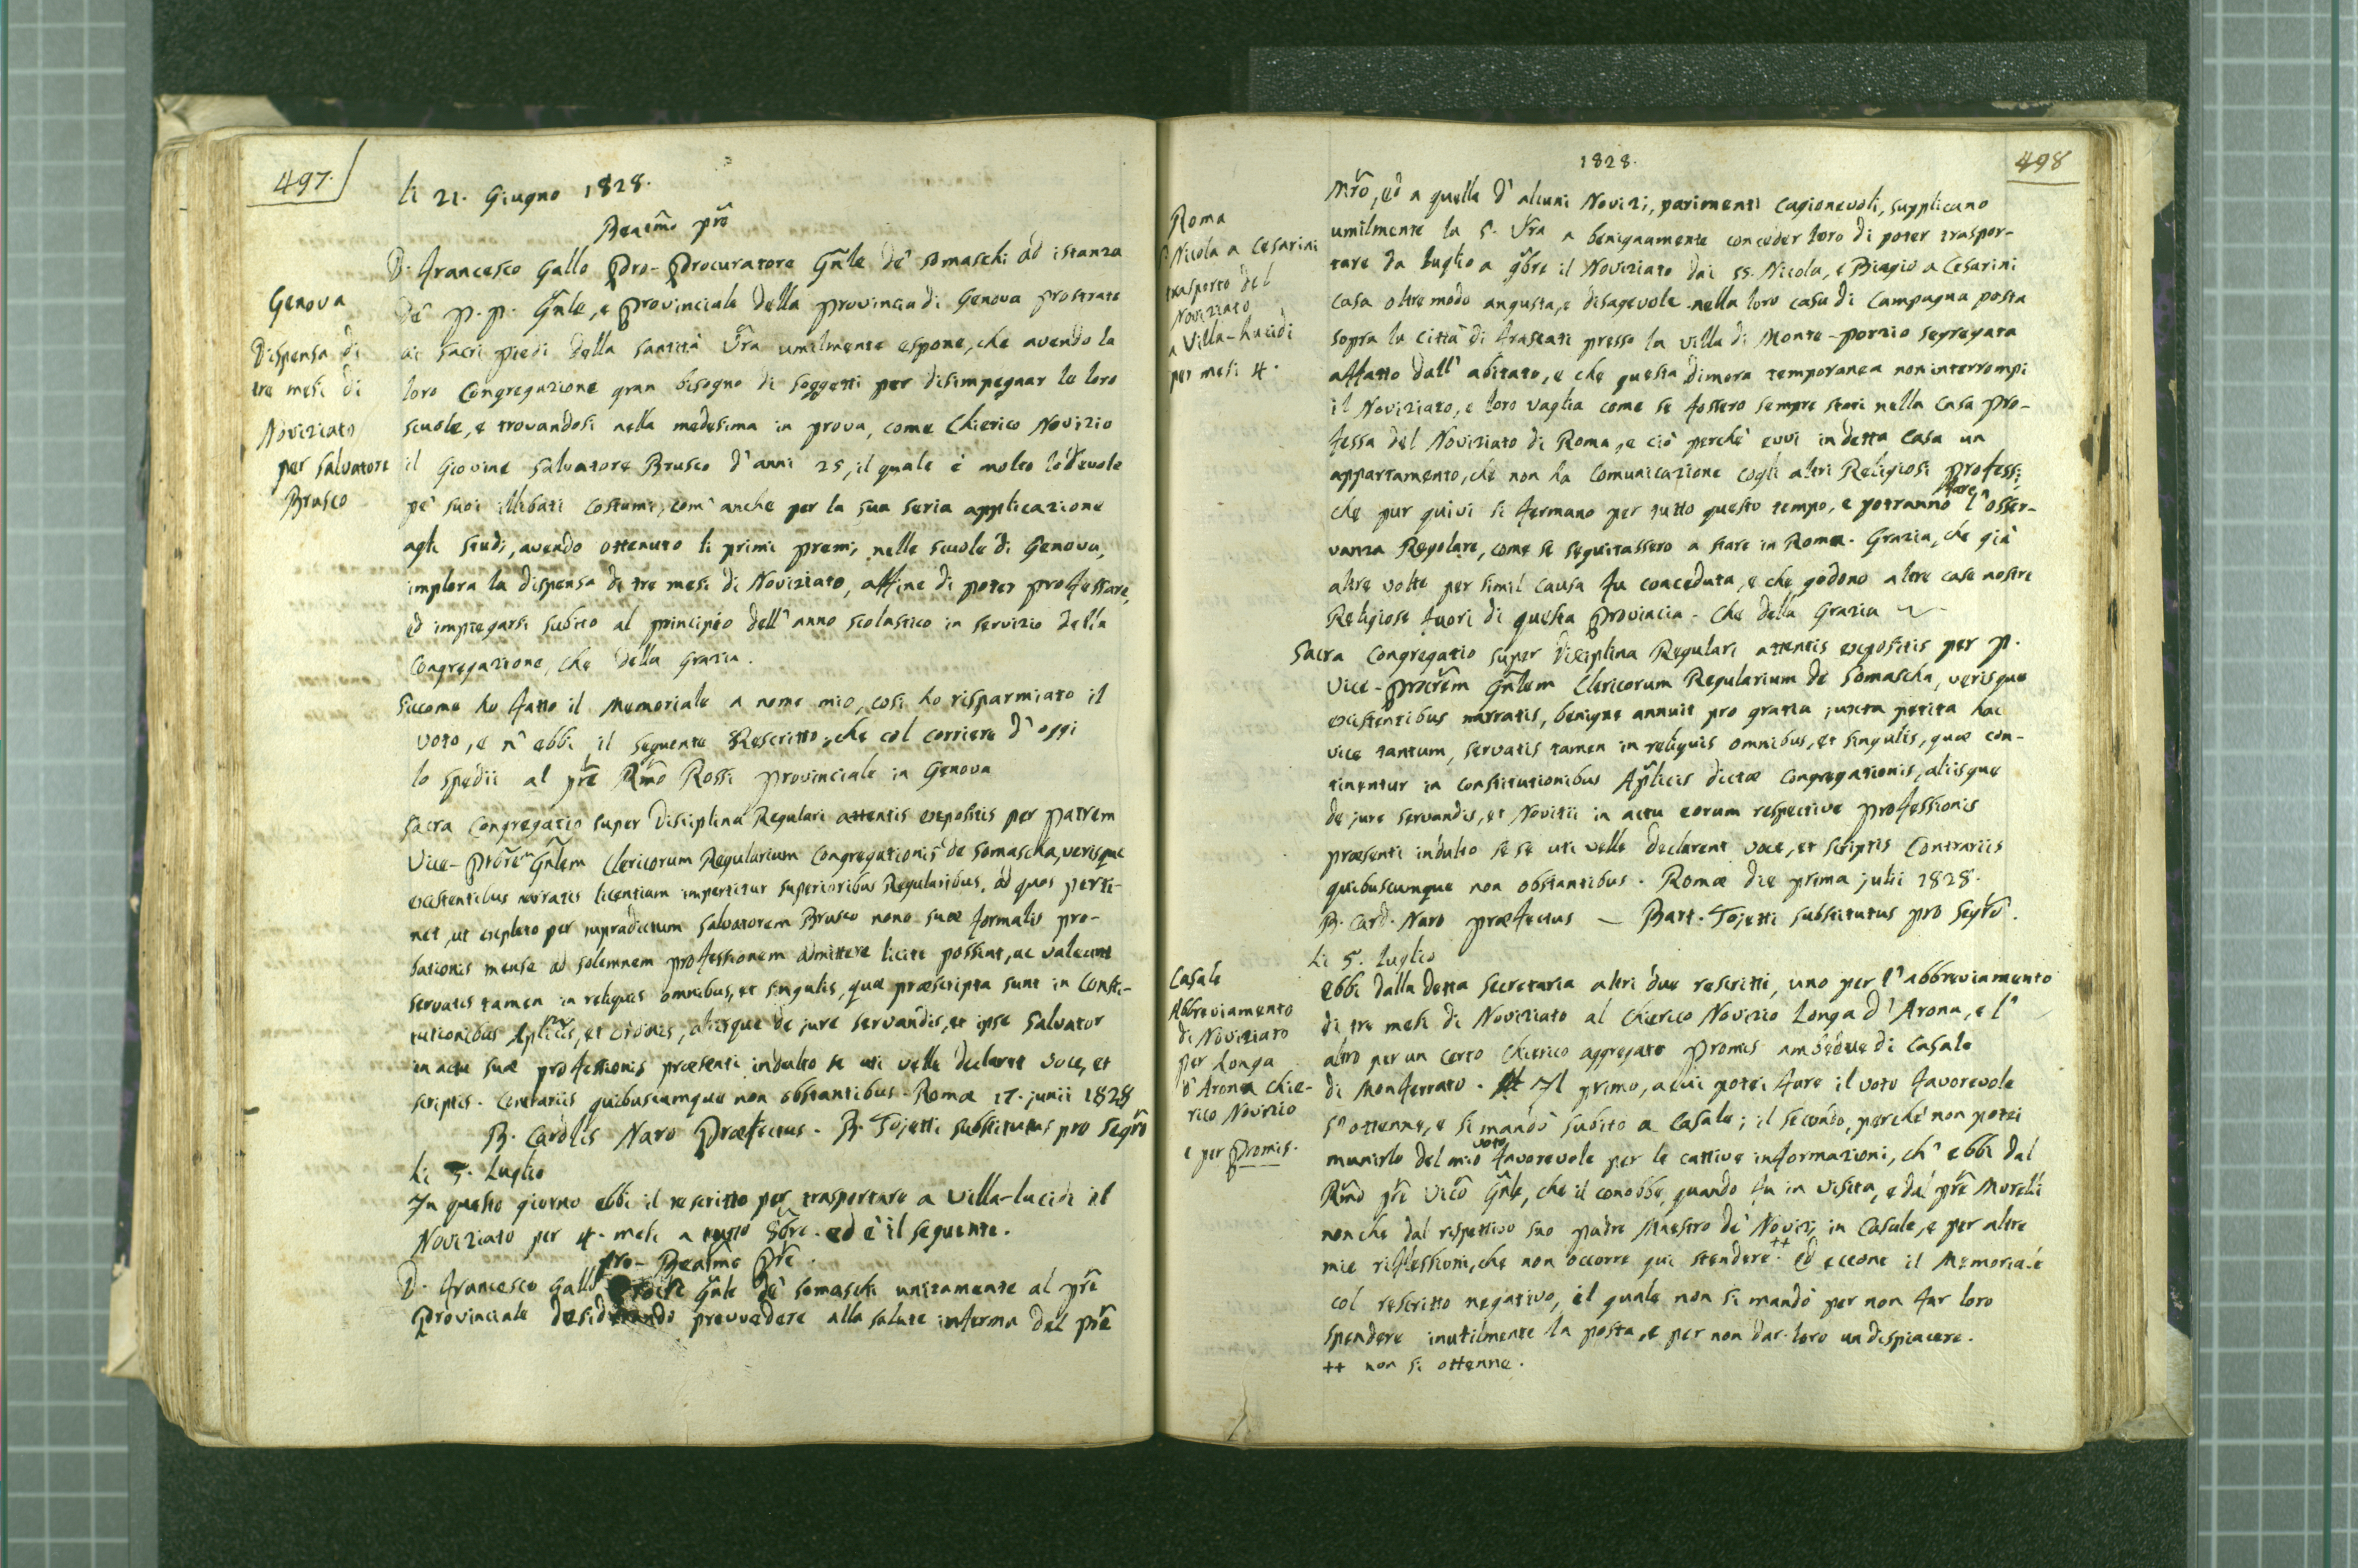 497.
li 21. Giugno 1828.
Beatmo pre
D. Francesco Gallo Pro-Procuratore Gnle de' Somaschi ad istanza
de' P. P. Gnle, e Provinciale della Provincia di Genova prostrato
ai sacri Piedi della Santità Vra umilmente espone, che avendo la
loro Congregazione gran bisogno di soggetti per disimpegnar le loro
scuole, e trovandosi nella medesima in prova, come Chierico Novizio
il Giovine Salvatore Brusco d'anni 25, il quale è molto lodevole
pe' suoi illibati costumi, com' anche per la sua seria applicazione
agli studi, avendo ottenuto li primi premi nelle scuole di Genova,
implora la dispensa di tre mesi di Noviziato, affine di poter professare,
ed impiegarsi subito al principio dell' anno scolastico in servizio della
Congregazione, che della Grazia.
Genova
Dispensa di
tre mesi di
Noviziato
per Salvatore
Brusco
Siccome ho fatto il Memoriale a nome mio, così ho risparmiato il
voto, e n' ebbi il seguente Rescritto, che col corriere d' oggi
lo spedii al pre Rmo Rossi Provinciale in Genova
Sacra Congregatio super Disciplina Regulari attentis expositis per Patrem
Vice-Prorem Gnlem Clericorum Regularium Congregationis de Somascha, verisque
existentibus narratis licentiam impertitur superioribus Regularibus, ad quos perti-
net, ut expleto per supradictum Salvatorem Brusco nono suæ formalis pro-
bationis mense ad solemnem professionem admittere licite possint, ac valeant
servatis tamen in reliquis omnibus, et singulis, quæ præscripta sunt in Consti-
tutionibus Aplicis, et ordinis, aliisque de jure servandis, et ipse Salvator
in actu suæ professionis præsenti indulto se uti velle declaret voce, et
scriptis. Contrariis quibuscumque non obstantibus. Romæ 17. junii 1828
B. Cardlis Naro Præfectus. B. Tojetti substitutus pro Segrio
Li 5. Luglio
In questo giorno ebbi il rescritto per trasportare a Villa-lucidi il
Noviziato per 4. mesi a tutto 8bre. ed è il seguente.
Beatmo Pre.
D. Francesco Gallo pro- Gnle de' Somaschi unitamente al pre
Provinciale desiderando provvedere alla salute inferma del pre
1828.
498
Mro, ed a quella d' alcuni Novizi, parimenti cagionevoli, supplicano
umilmente la S. Vra a benignamente conceder loro di poter traspor-
tare da luglio a 9bre il Noviziato dai SS. Nicola, e Biagio a Cesarini
casa oltremodo angusta, e disagevole nella loro casa di Campagna posta
sopra la Città di Frascati presso la villa di Monte-porzio segregata
affatto dall' abitato, e che questa dimora temporanea non interrompi
il Noviziato, e loro vaglia come se fossero sempre stati nella Casa pro-
fessa del Noviziato di Roma, e ciò perchè evvi in detta Casa un
appartamento, che non ha comunicazione cogli altri Religiosi professi,
che pur quivi si fermano per tutto questo tempo, e potranno fare l' osser-
vanza Regolare, come se seguitassero a stare in Roma. Grazia, che già
altre volte per simil causa fu conceduta, e che godono altre case nostre
Religiose fuori di questa Provincia. Che della Grazia
Roma
S Nicola a Cesarini
trasporto del
Noviziato
a Villa-Lucidi
per mesi 4.
Sacra Congregatio super Disciplina Regulari attentis expositis per P.
Vice-procrem Gnlem Clericorum Regularium de Somascha, verisque
existentibus narratis, benigne annuit pro gratia juxta petita hac
vice tantum, servatis tamen in reliquis omnibus, et singulis, quæ con-
tinentur in Constitutionibus Aplicis dictæ Congregationis, aliisque
de jure servandis, et Novitii in actu eorum respective professionis
præsenti indulto se se uti velle declarent voce, et scriptis Contrariis
quibuscumque non obstantibus. Romæ die prima julii 1828.
B. Card. Naro præfectus — Bart. Tojetti substitutus pro Segrio.
Li 5. Luglio
Ebbi dalla detta Secretaria altri due rescritti, uno per l' abbreviamento
di tre mesi di Noviziato al Chierico Novizio Longa d' Arona, e l'
altro per un certo Chierico aggregato Promis ambedue di Casale
di Monferrato. Il primo, a cui potei fare il voto favorevole
s' ottenne, e si mandò subito a Casale; il secondo, perchè non potei
munirlo del mio voto favorevole per le cattive informazioni, ch' ebbi dal
Rmo pre Vico Gnle, che il conobbe, quando fu in visita, e dal pre Morelli
non che dal rispettivo suo padre Maestro de' Novizi, in Casale, e per altre
mie riflessioni, che non occorre qui stendere. ++ ed eccone il Memoriale
col rescritto negativo, il quale non si mandò per non far loro
spendere inutilmente la posta, e per non dar loro un dispiacere.
++ non si ottenne.
Casale
Abbreviamento
di Noviziato
per Longa
d' Arona Chie-
rico Novizio
e per Promis.